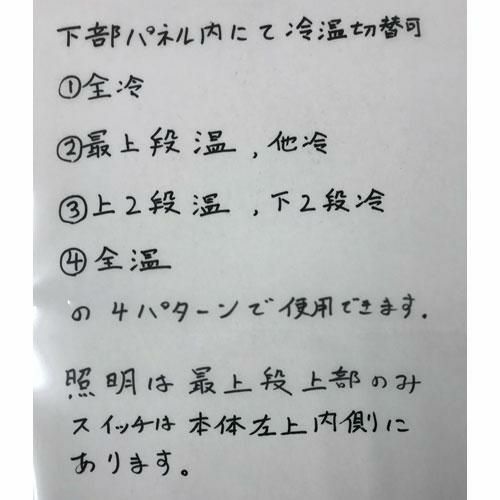 下部パネル内にて冷温切替可
①全冷
②最上段温,他冷
③上2段温,下2段冷
④全温
の4パターンで使用できます.
照明は最上段上部のみ
スイッチは本体左上内側に
あります。